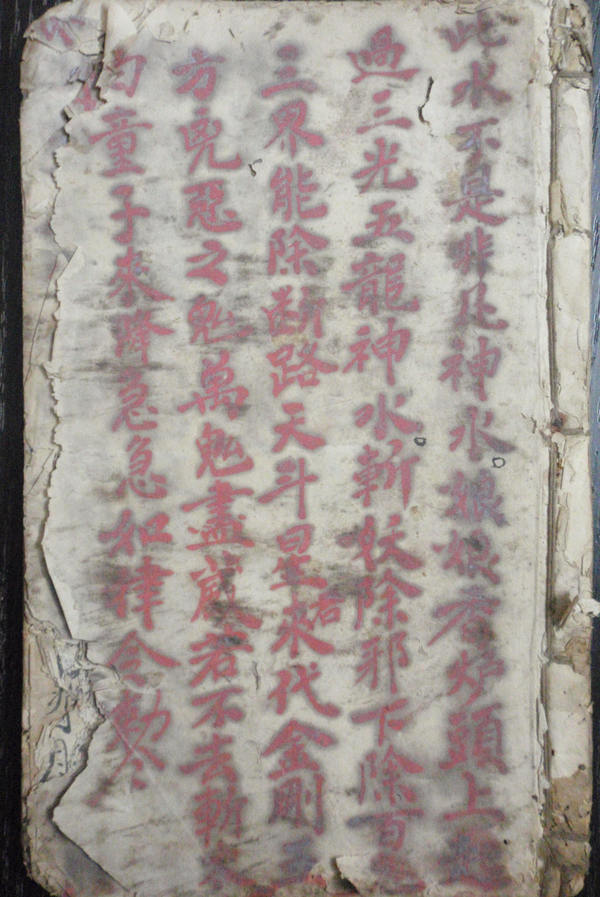 此水不是非凡神水娘娘香炉頭上
過三光五龍神水斬妖除邪下除百
三界能除断路天斗星君來代金剛
方兇惡之鬼萬鬼盡藏若不去斬
童子來降急急如律令敕令